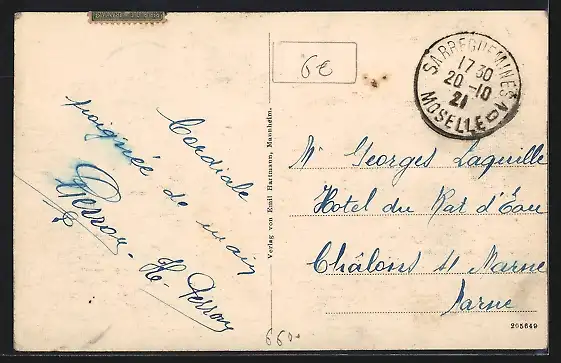 Cordiale
poignée de main
H. Perron
Verlag von Emil Hartmann, Mannheim.
6€
SARREGUEMINES
17 30
20 -10
21
MOSELLE
Mr Georges Laquille
Hotel du Rat d'Eau
Châlons s/ Marne
Marne
205649
660